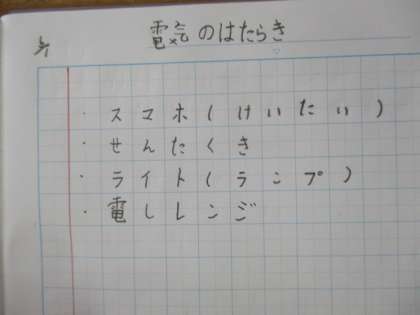 電気のはたらき
・スマホ(けいたい)
・せんたくき
・ライト(ランプ)
・電しレンジ